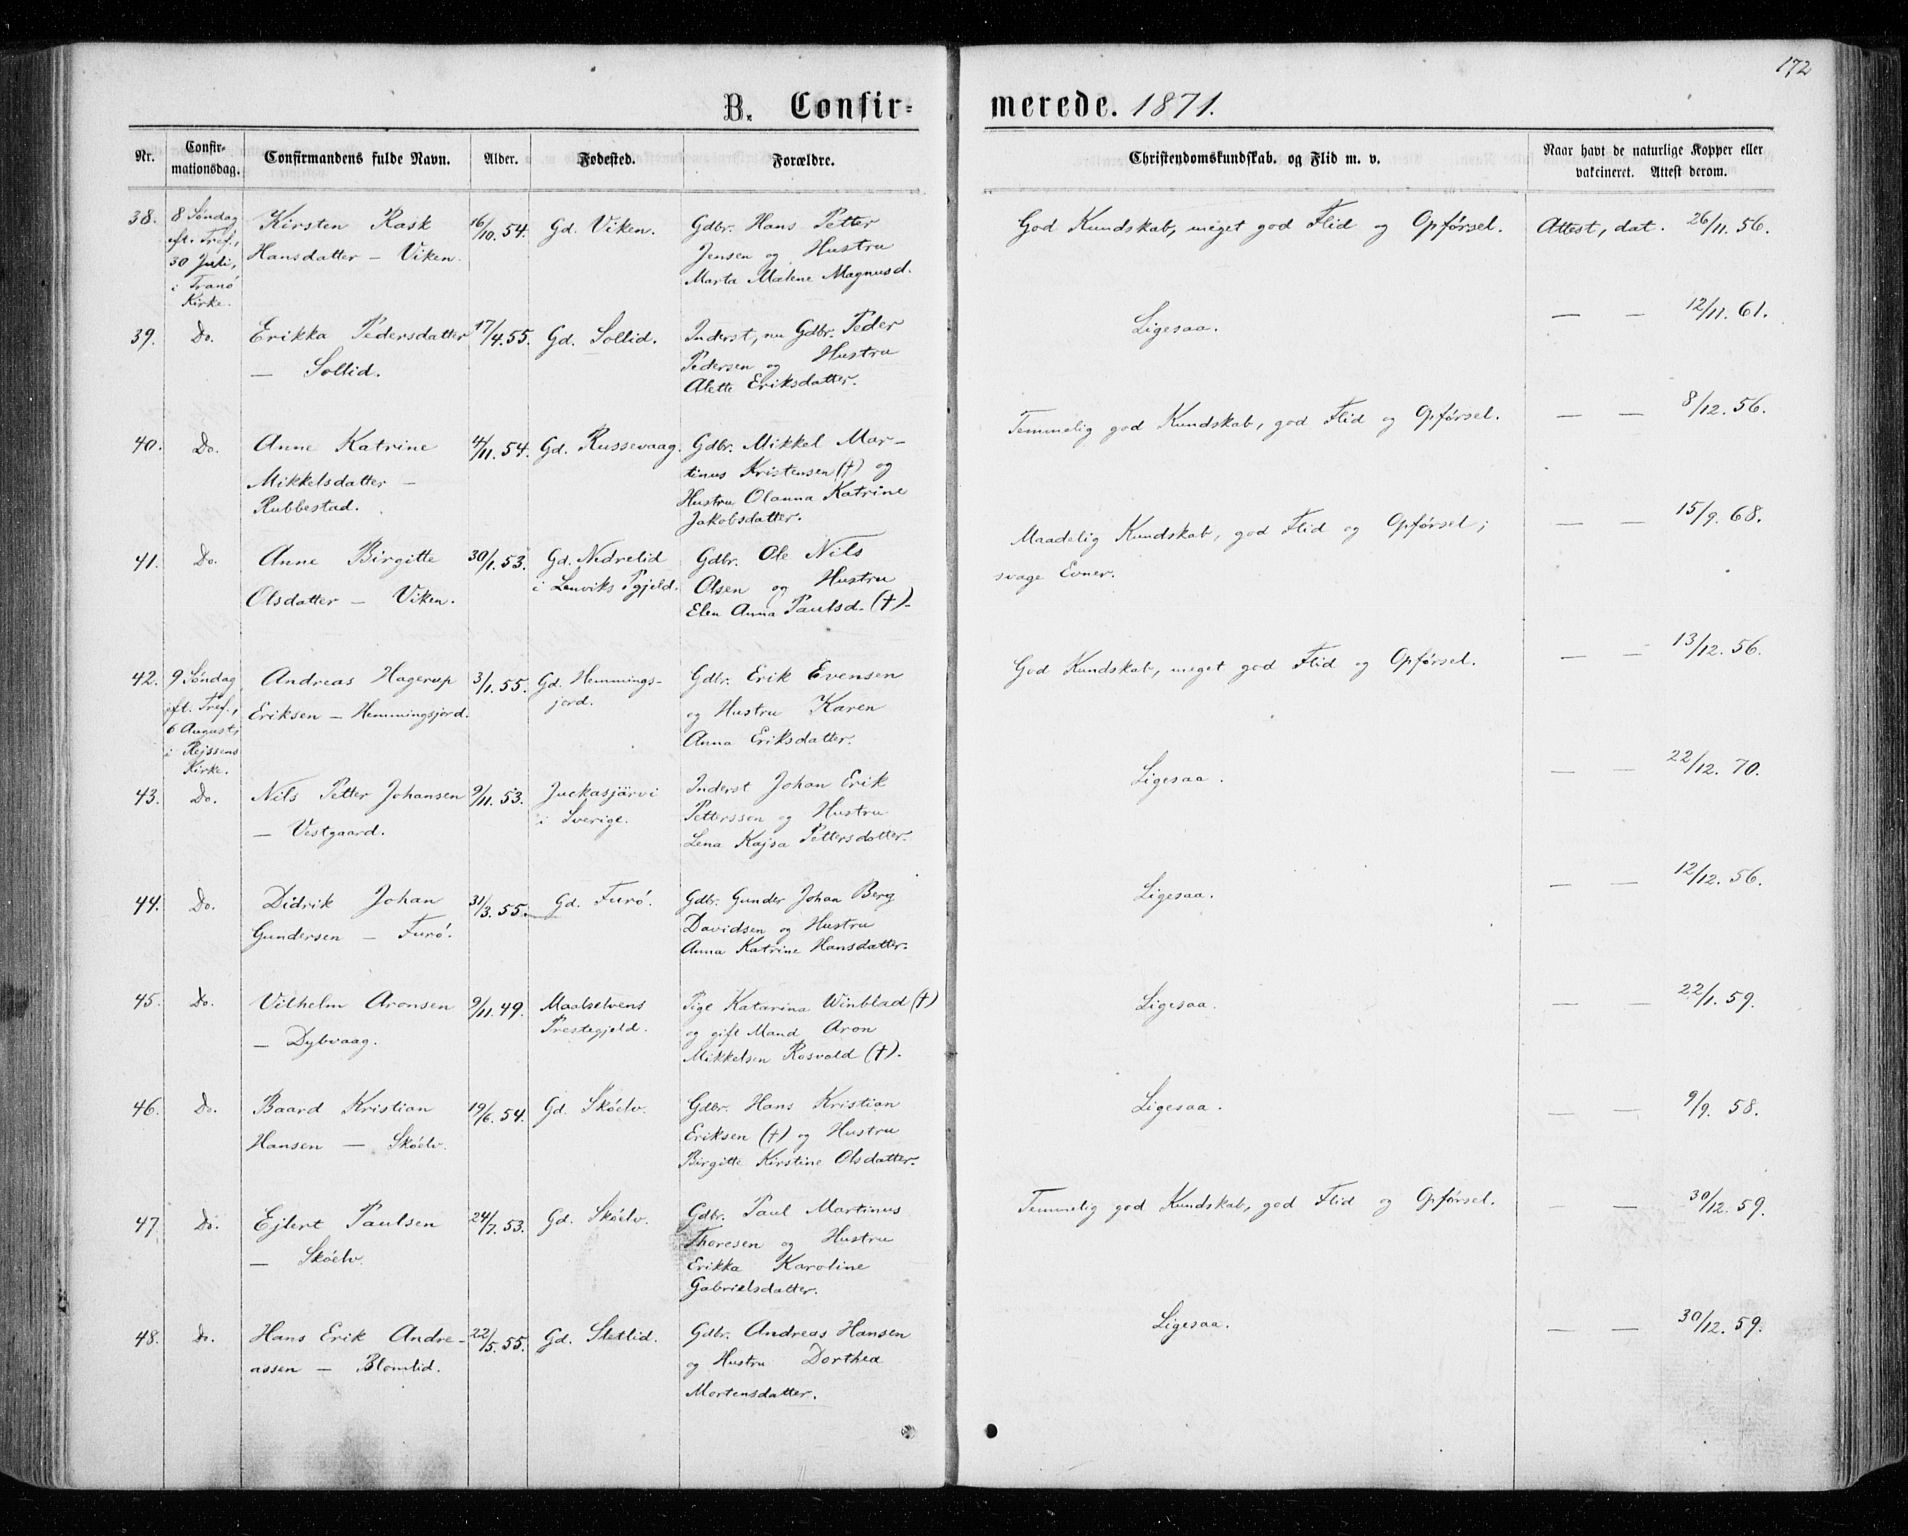 172
B. Confir-
merede. 1871.
Nr. Confir-mationsdag. Confirmandens fulde Navn. Alder. Fødested. Forældre. Christendomskundskab, og Flid m. v. Naar havt de naturlige Kopper eller vakcineret. Attest derom.
38. 8 Søndag Kirsten Rask 16/10.54. Gd. Viken. Gdbr. Hans Petter God Kundskab, meget god Flid og Opførsel. Attest, dat. 26/11.56.
eft. Tref., Hansdatter - Viken. Jensen og Hustru
30 Juli, Marta Malene Magnusd.
i Tranö
Kirke.
39. Do. Erikka Pedersdatter 17/4.55. Gd. Sollid. Inderst, nu Gdbr. Peder Ligesaa. — — 12/11.61.
— Sollid. Pedersen og Hustru
Alette Eriksdatter.
40. Do. Anne Katrine 4/11.54. Gd. Russevaag. Gdbr. Mikkel Mar- Temmelig god Kundskab, god Flid og Opførsel. — — 8/12.56.
Mikkelsdatter - tinus Kristensen (†) og
Rubbestad. Hustru Olanna Katrine
Jakobsdatter.
41. Do. Anne Birgitte 30/1.53. Gd. Nedrelid Gdbr. Ole Nils Maadelig Kundskab, god Flid og Opførsel; — — 15/9.68.
Olsdatter - Viken. i Lenviks Pgjeld. Olsen og Hustru svage Evner.
Elen Anna Paulsd. (†).
42. 9 Søndag Andreas Hagerup 3/1.55. Gd. Hemmings- Gdbr. Erik Evensen God Kundskab, meget god Flid og Opførsel. — — 13/12.56.
eft. Tref., Eriksen - Hemmingsjord. jord. og Hustru Karen
6 August, Anna Eriksdatter.
i Rejssens
Kirke.
43. Do. Nils Petter Johansen 9/11.53. Juckasjärvi Inderst Johan Erik Ligesaa. — — 22/12.70.
— Vestgaard. i Sverige. Pettersson og Hustru
Lena Kajsa Pettersdotter.
44. Do. Didrik Johan 31/3.55. Gd. Furö. Gdbr. Gunder Johan Berg Ligesaa. — — 12/12.56.
Gundersen - Furö. Davidsen og Hustru
Anna Katrine Hansdatter.
45. Do. Vilhelm Aronsen 9/11.49. Maalselvens Pige Katarina Winblad (†) Ligesaa. — — 22/1.59.
— Dybvaag. Prestegjeld. og gift Mand Aron
Mikkelsen Rosvold (†).
46. Do. Baard Kristian 19/6.54. Gd. Skóelv. Gdbr. Hans Kristian Ligesaa. — — 9/9.58.
Hansen - Skóelv. Eriksen (†) og Hustru
Birgitte Kirstine Olsdatter.
47. Do. Ejlert Paulsen 24/7.53. Gd. Skóelv. Gdbr. Paul Martinus Temmelig god Kundskab, god Flid og Opførsel. — — 30/12.59.
— Skóelv. Thoresen og Hustru
Erikka Karoline
Gabrielsdatter.
48. Do. Hans Erik Andre- 22/5.55. Gd. Sletlid. Gdbr. Andreas Hansen Ligesaa. — — 30/12.59.
assen - Blomlid. og Hustru Dorthea
Mortensdatter.